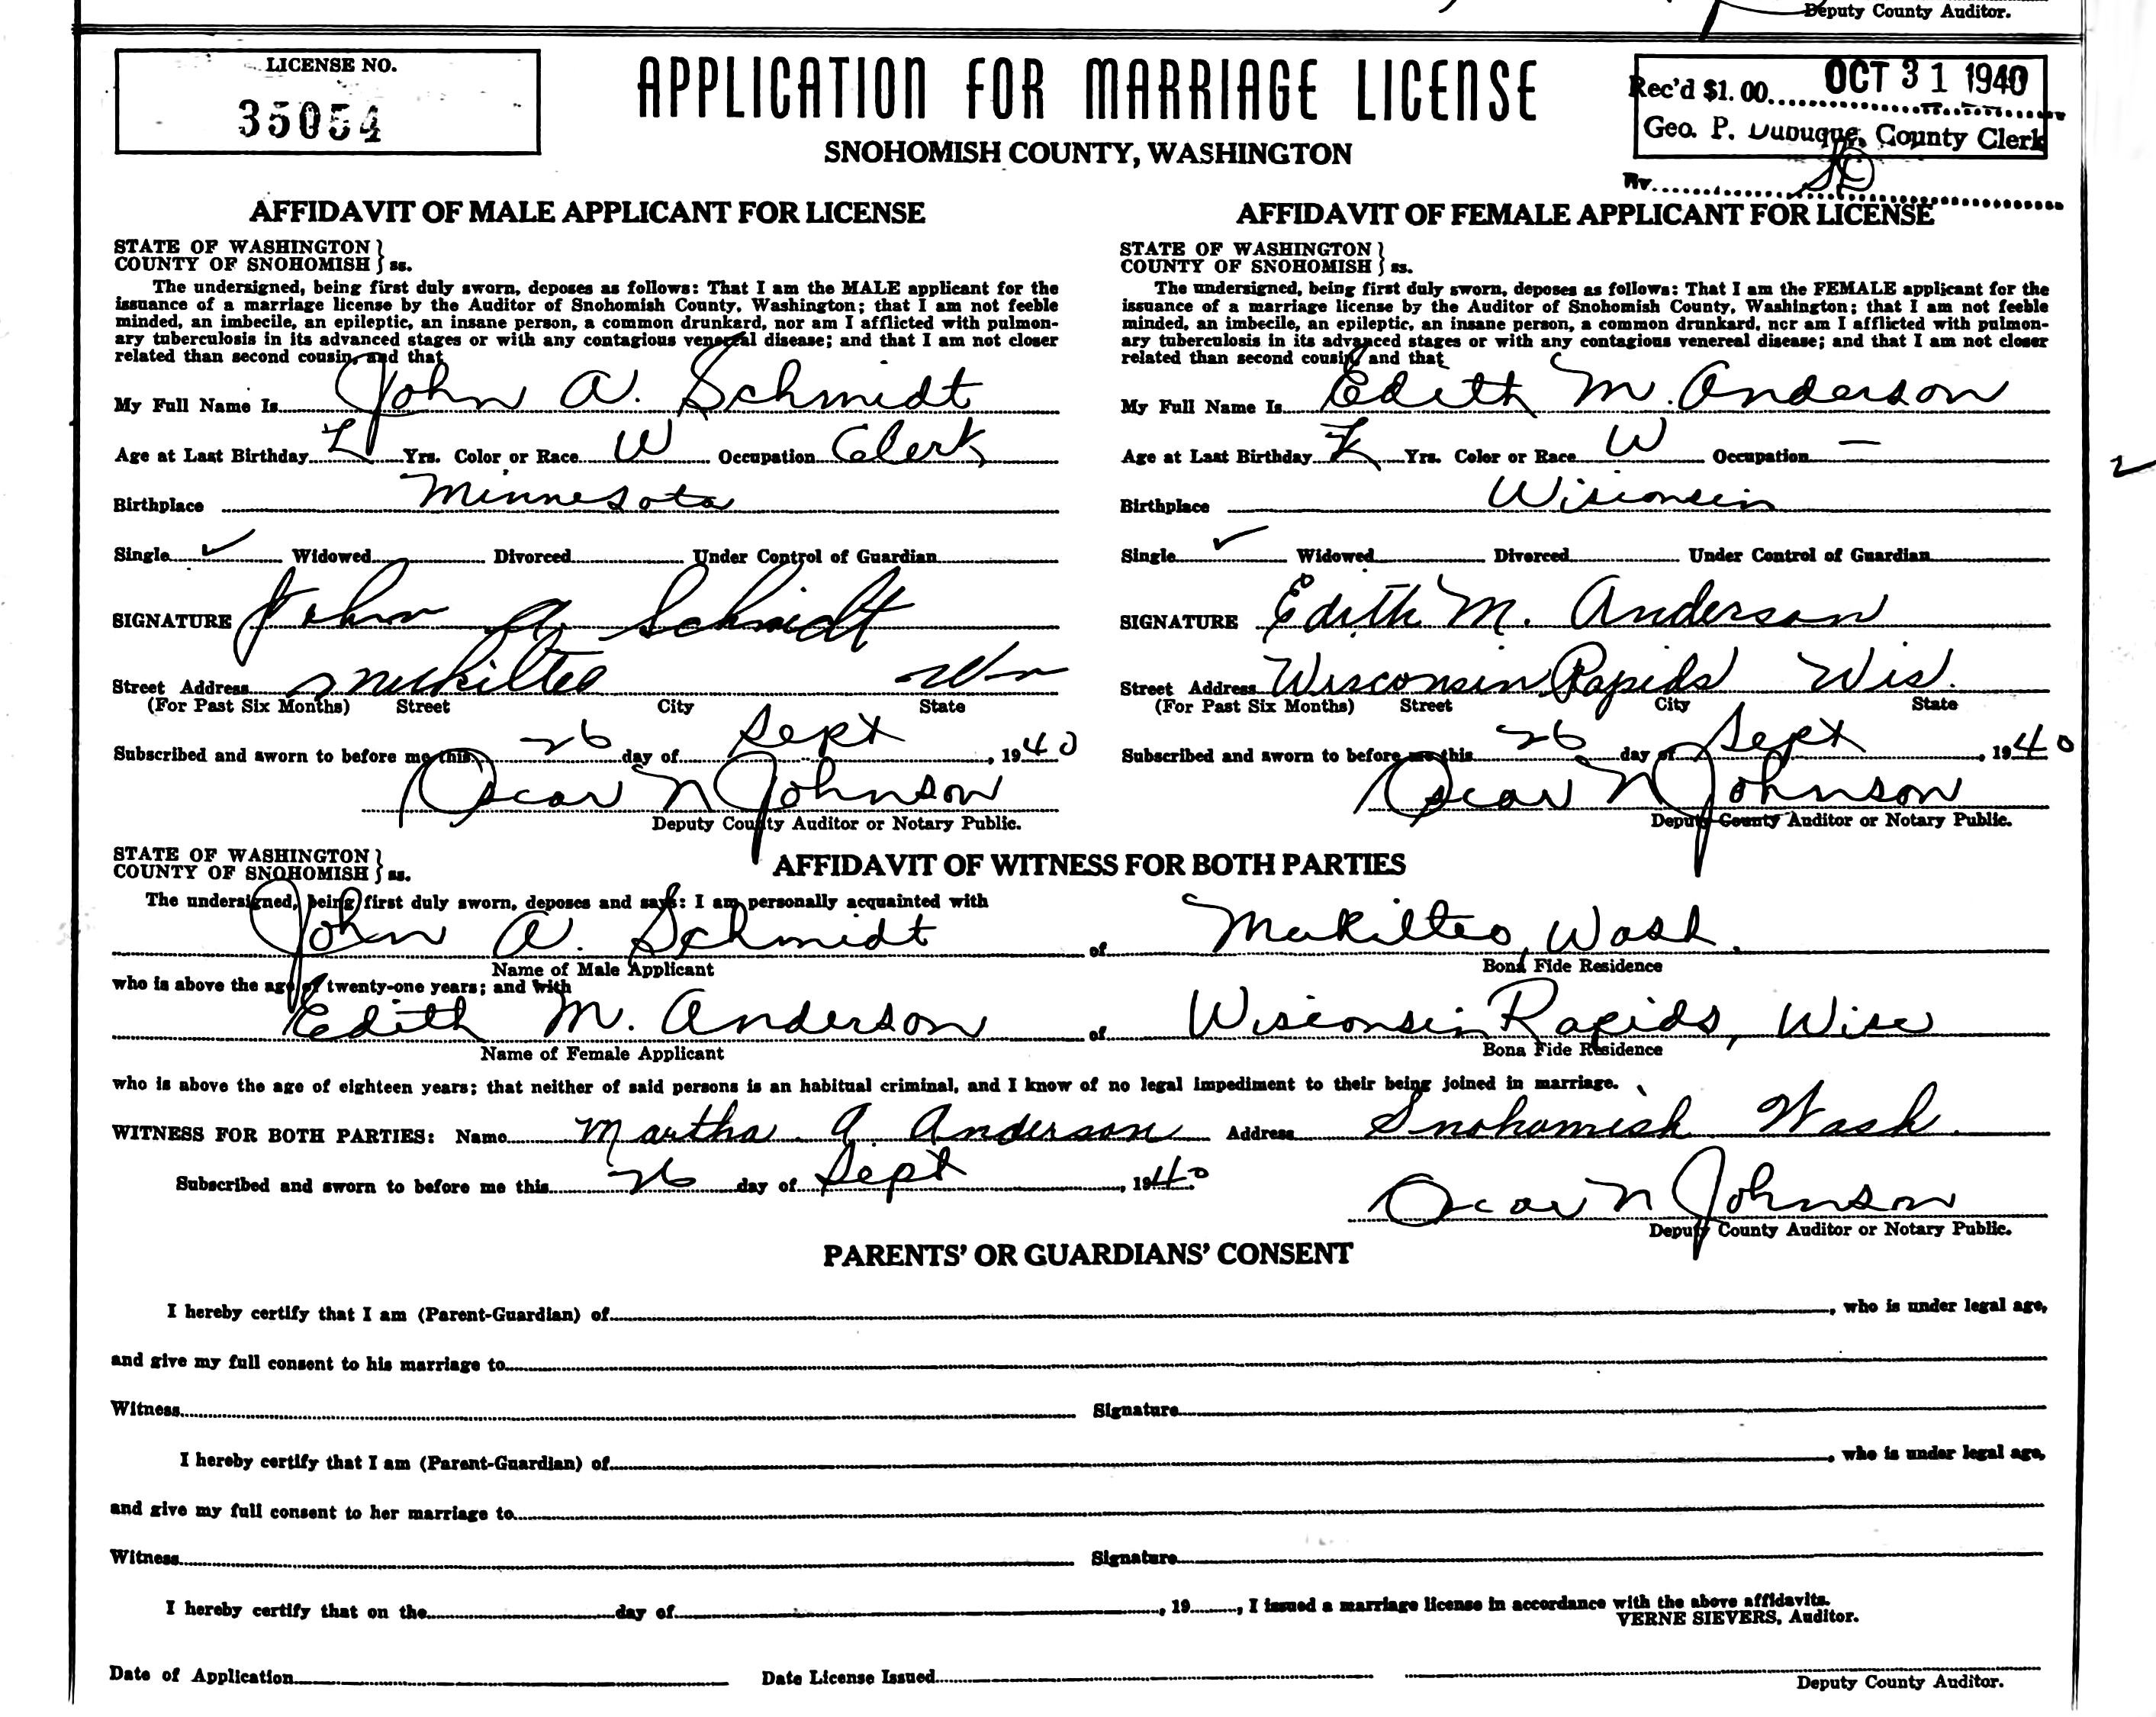 Deputy County Auditor.
LICENSE NO.
35054
APPLICATION FOR MARRIAGE LICENSE
SNOHOMISH COUNTY, WASHINGTON
Rec'd $1.00 OCT 31 1940
Geo. P. Dubuque, County Clerk
By
AFFIDAVIT OF MALE APPLICANT FOR LICENSE
STATE OF WASHINGTON
COUNTY OF SNOHOMISH } ss.
The undersigned, being first duly sworn, deposes as follows: That I am the MALE applicant for the
issuance of a marriage license by the Auditor of Snohomish County, Washington; that I am not feeble
minded, an imbecile, an epileptic, an insane person, a common drunkard, nor am I afflicted with pulmon-
ary tuberculosis in its advanced stages or with any contagious venereal disease; and that I am not closer
related than second cousin, and that
My Full Name Is John A. Schmidt
Age at Last Birthday L Yrs. Color or Race W Occupation Clerk
Birthplace Minnesota
Single ✓ Widowed Divorced Under Control of Guardian
SIGNATURE John A Schmidt
Street Address Mukilteo Wn
(For Past Six Months) Street City State
Subscribed and sworn to before me this 26 day of Sept, 1940
Oscar N Johnson
Deputy County Auditor or Notary Public.
AFFIDAVIT OF FEMALE APPLICANT FOR LICENSE
STATE OF WASHINGTON
COUNTY OF SNOHOMISH } ss.
The undersigned, being first duly sworn, deposes as follows: That I am the FEMALE applicant for the
issuance of a marriage license by the Auditor of Snohomish County, Washington; that I am not feeble
minded, an imbecile, an epileptic, an insane person, a common drunkard, nor am I afflicted with pulmon-
ary tuberculosis in its advanced stages or with any contagious venereal disease; and that I am not closer
related than second cousin, and that
My Full Name Is Edith M. Anderson
Age at Last Birthday Yrs. Color or Race W Occupation —
Birthplace Wisconsin
Single ✓ Widowed Divorced Under Control of Guardian
SIGNATURE Edith M. Anderson
Street Address Wisconsin Rapids Wis.
(For Past Six Months) Street City State
Subscribed and sworn to before me this 26 day of Sept, 1940
Oscar N Johnson
Deputy County Auditor or Notary Public.
STATE OF WASHINGTON
COUNTY OF SNOHOMISH } ss.
AFFIDAVIT OF WITNESS FOR BOTH PARTIES
The undersigned, being first duly sworn, deposes and says: I am personally acquainted with
John A. Schmidt of Mukilteo, Wash.
Name of Male Applicant Bona Fide Residence
who is above the age of twenty-one years; and with
Edith M. Anderson of Wisconsin Rapids, Wisc
Name of Female Applicant Bona Fide Residence
who is above the age of eighteen years; that neither of said persons is an habitual criminal, and I know of no legal impediment to their being joined in marriage.
WITNESS FOR BOTH PARTIES: Name Martha A Anderson Address Snohomish Wash.
Subscribed and sworn to before me this 26 day of Sept, 1940
Oscar N Johnson
Deputy County Auditor or Notary Public.
PARENTS' OR GUARDIANS' CONSENT
I hereby certify that I am (Parent-Guardian) of, who is under legal age,
and give my full consent to his marriage to
Witness Signature
I hereby certify that I am (Parent-Guardian) of, who is under legal age,
and give my full consent to her marriage to
Witness Signature
I hereby certify that on the day of, 19, I issued a marriage license in accordance with the above affidavits.
VERNE SIEVERS, Auditor.
Date of Application Date License Issued
Deputy County Auditor.